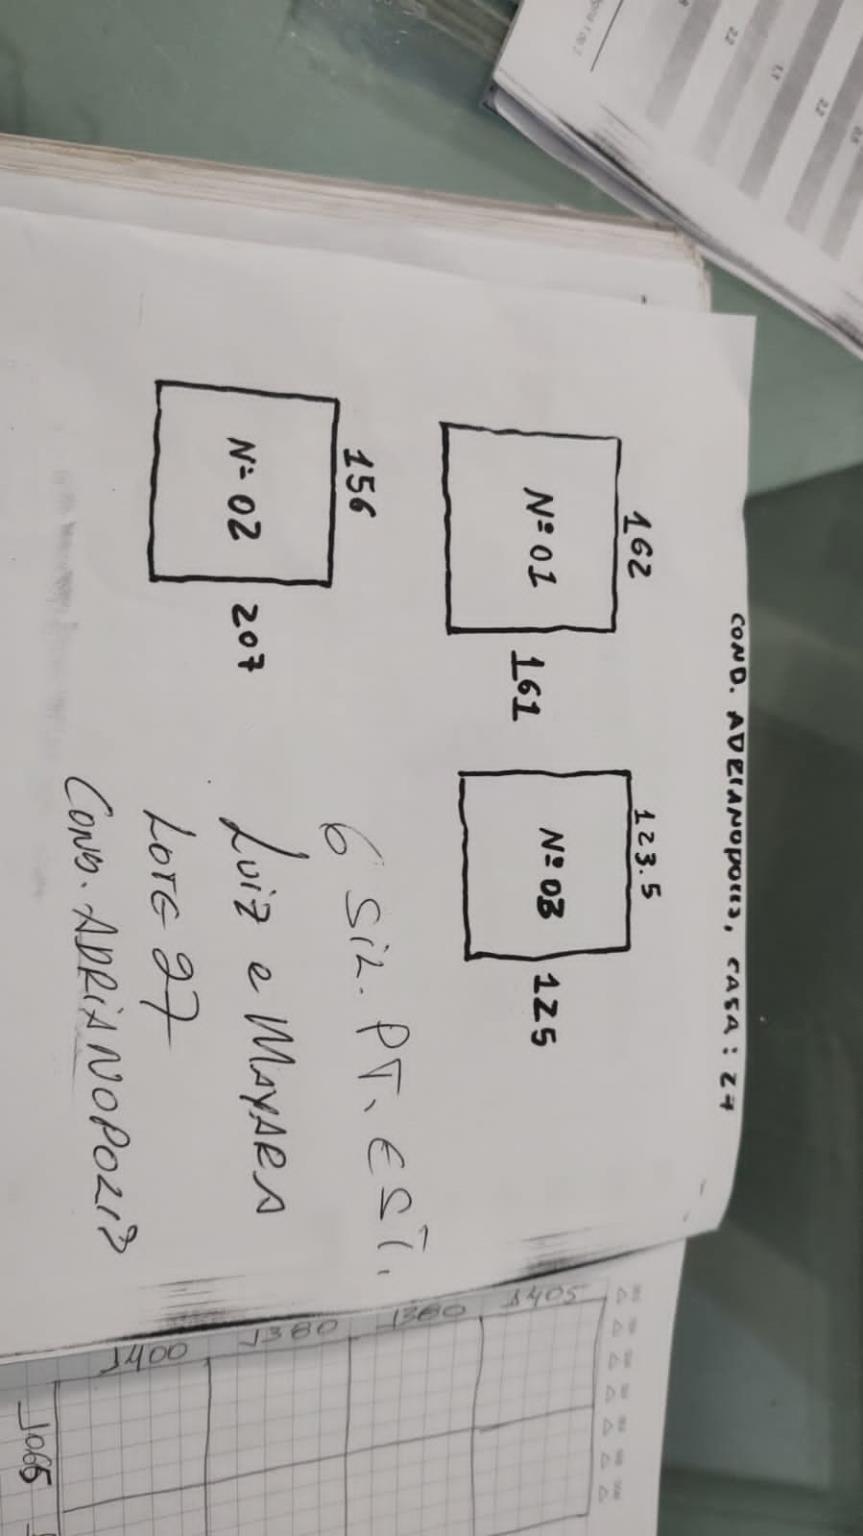 COND. ADRIANOPOLIS, CASA: 27
162
Nº 01
161
123.5
Nº 03
125
156
Nº 02
207
6 SIL. PT. EST.
LUIZ e MAYARA
LOTE 27
COND. ADRIANOPOLIS
1405
1380
1380
1400
1065
22
17
22